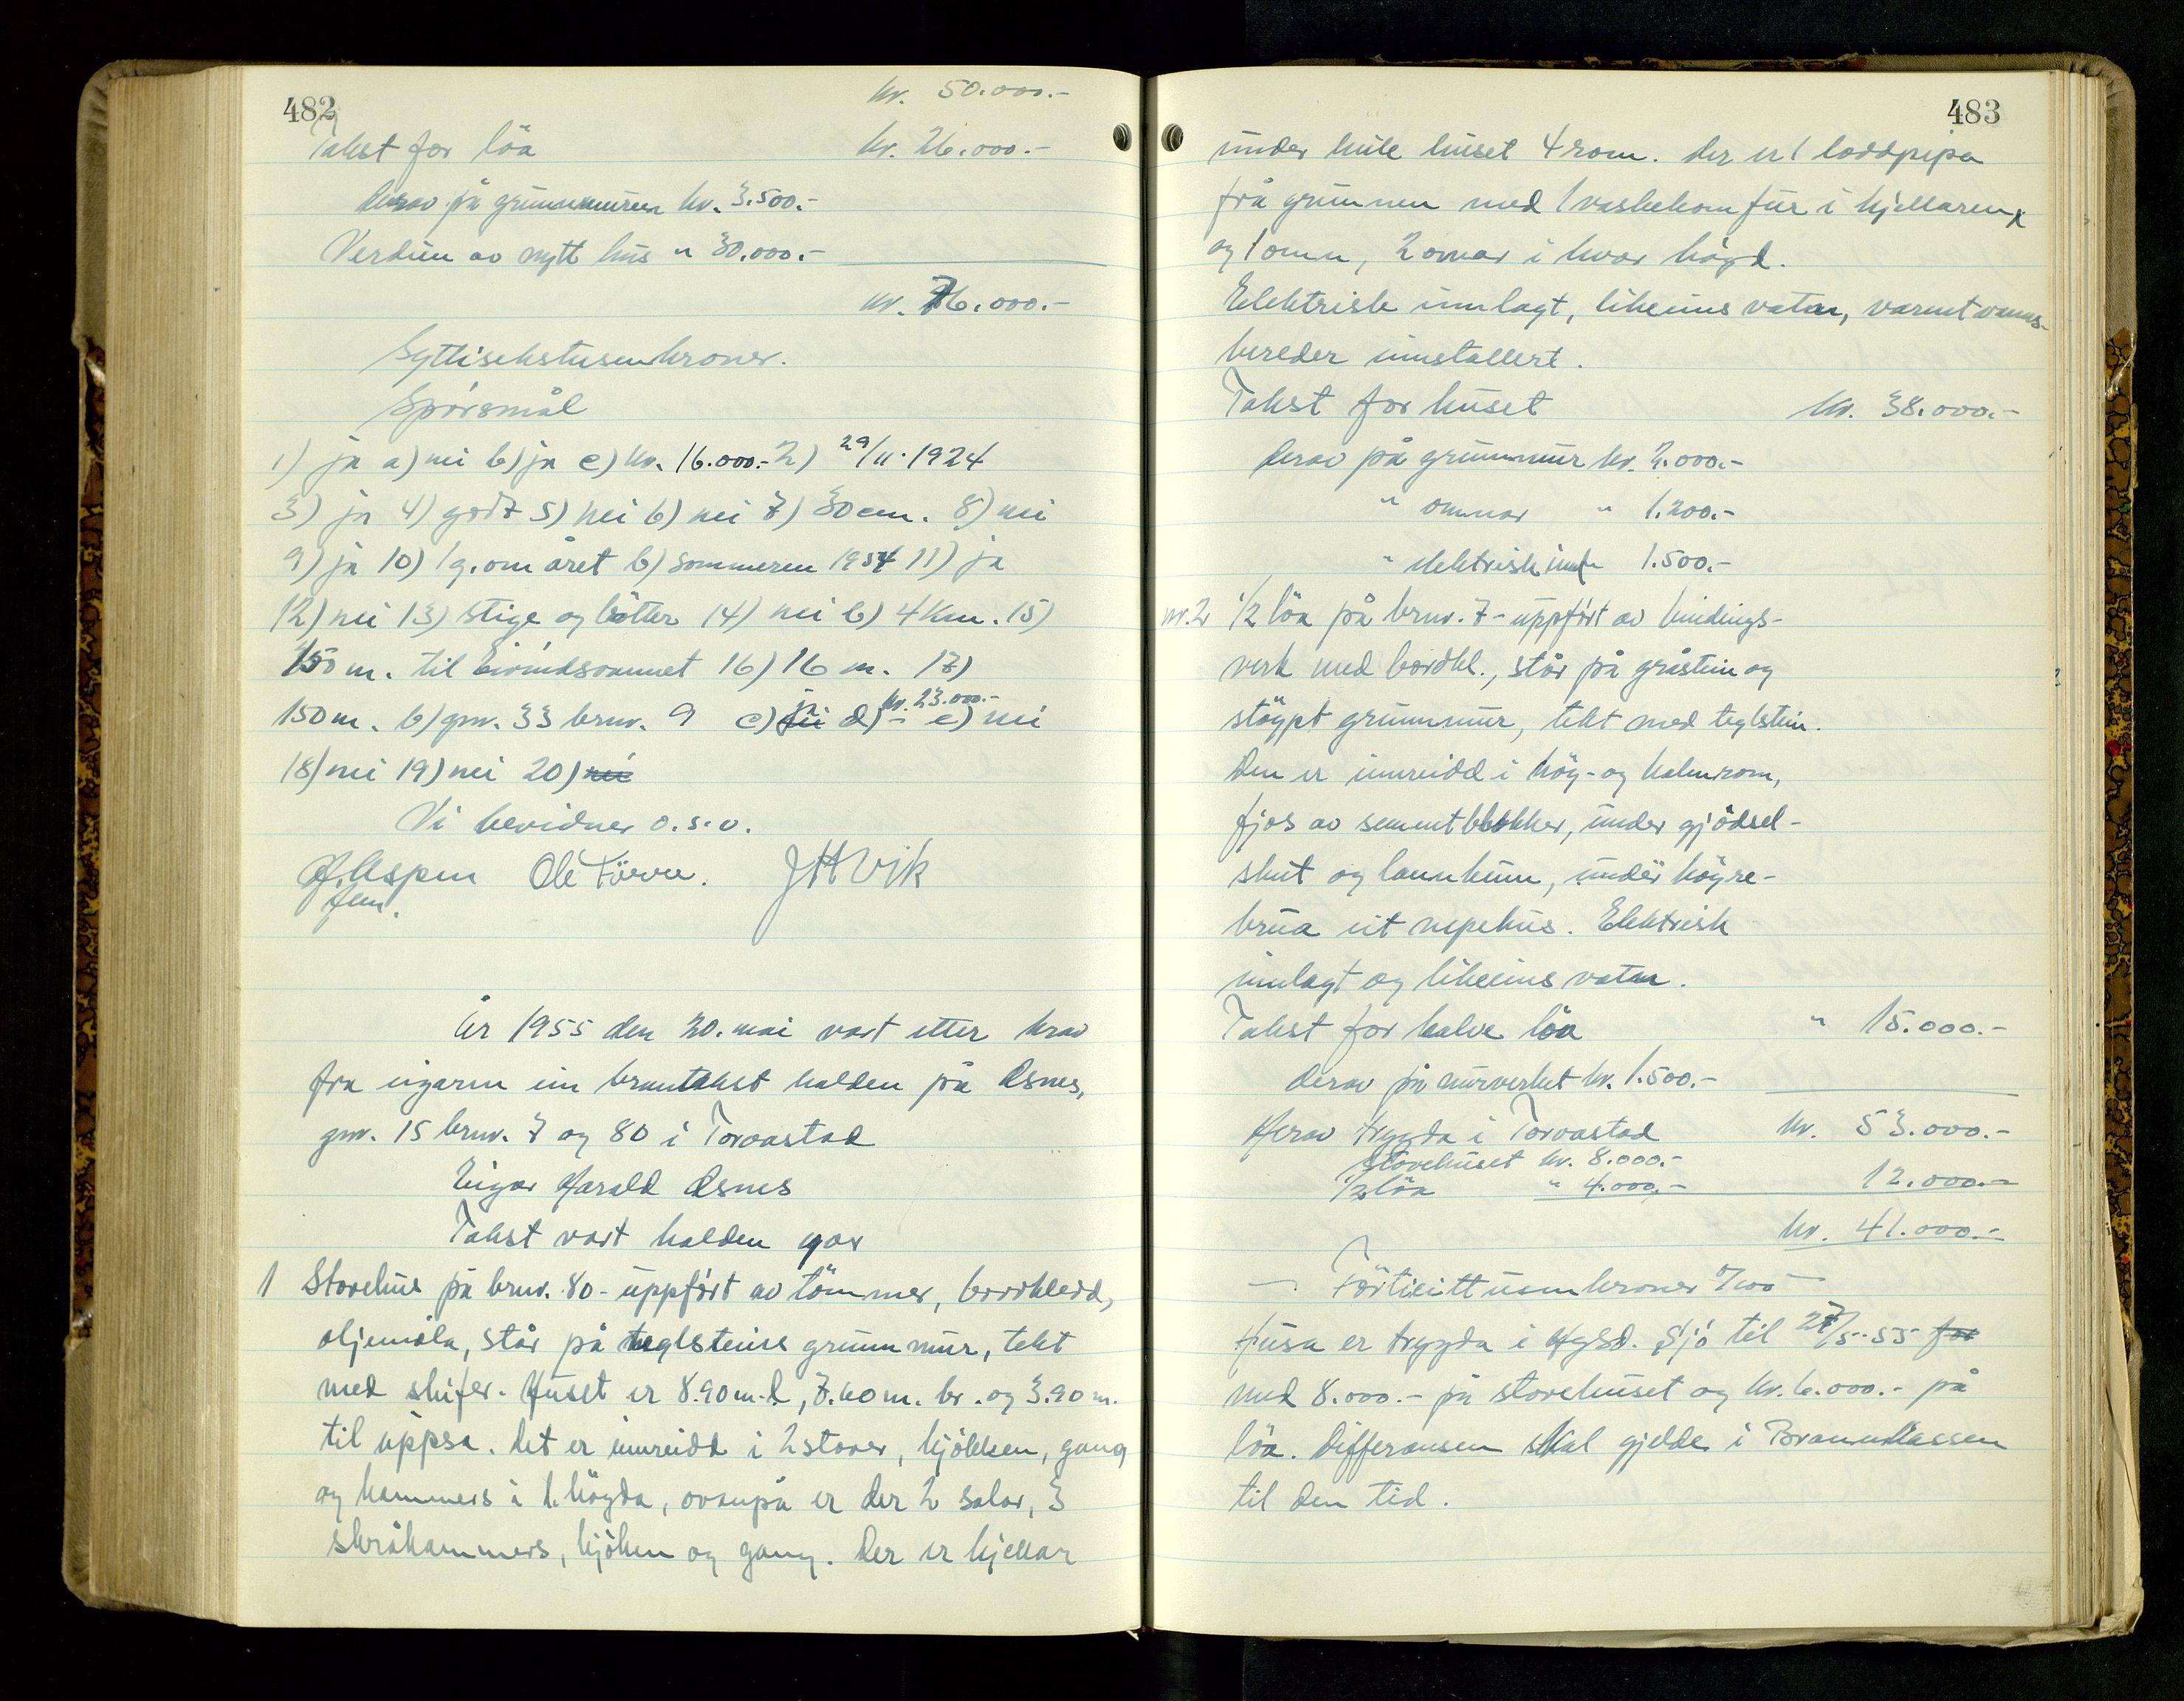 482
kr. 50.000.-
Takst for löa kr. 26.000.-
derav på grunnmuren kr. 3.500.-
Verdien av nytt hus " 30.000.-
kr. 76.000.-
Syttisekstusenkroner.
Spörsmål
1) ja a) nei b) ja c) kr. 16.000.- 2) 29/11.1924
3) ja 4) godt 5) nei 6) nei 7) 30 cm. 8) nei
9) ja 10) 1 g. om året b) sommeren 1954 11) ja
12) nei 13) stige og bötter 14) nei b) 4 km. 15)
150 m. til Eivindsvannet 16) 16 m. 17)
150 m. b) gnr. 33 brnr. 9 c) ja d) kr. 23.000.- e) nei
18) nei 19) nei 20) nei
Vi bevidner o.s.v.
Aspen Ole Förre. J H Vik
fem.
År 1955 den 20. mai vart etter krav
fra eigaren ein branntakst halden på Osnes,
gnr. 15 brnr. 7 og 80 i Torvastad
Eigar Harald Osnes
Takst vart halden yver
1 Stovehus på brnr. 80 - uppfört av tömmer, bordkledd,
oljemåla, står på teglsteins grunnmur, tekt
med skifer. Huset er 8.90 m. l, 7.60 m. br. og 3.90 m.
til uppsa. Det er innreidd i 2 stover, kjökken, gang
og kammers i 1. högda, ovanpå er der 2 salar, 3
skråkammers, kjöken og gang. Der er kjellar
483
under heile huset 4 rom. Der er 1 loddpipa
frå grunnen med 1 vaskekomfur i kjellaren,
og 1 omn, 2 omnar i hvar högd.
Elektrisk innlagt, likeeins vatn, varmtvanns-
bereder innstallert.
Takst for huset kr. 38.000.-
derav på grunnmur kr. 2.000.-
" omnar " 1.200.-
" elektrisk innl. 1.500.-
nr. 2 1/2 löa på brnr. 7 - uppfört av bindings-
verk med bordkl., står på gråstein og
stöypt grunnmur, tekt med teglstein.
Den er innreidd i höy- og halmrom,
fjos av sementblokker, under gjödsel-
skut og lannkum, under höyre-
brua eit nepehus. Elektrisk
innlagt og likeeins vatn.
Takst for halve löa " 15.000.-
derav på murverket kr. 1.500.-
Herav trygda i Torvastad kr. 53.000.-
Stovehuset kr. 8.000.-
1/2 löa " 4.000.- 12.000.-
kr. 41.000.-
- Förtieittusenkroner 0/100 -
Husa er trygda i Hgsd. Sjö til 27/5-55 for
med 8.000.- på stovehuset og kr. 6.000.- på
löa. Differansen skal gjelde i Brannkassen
til den tid.